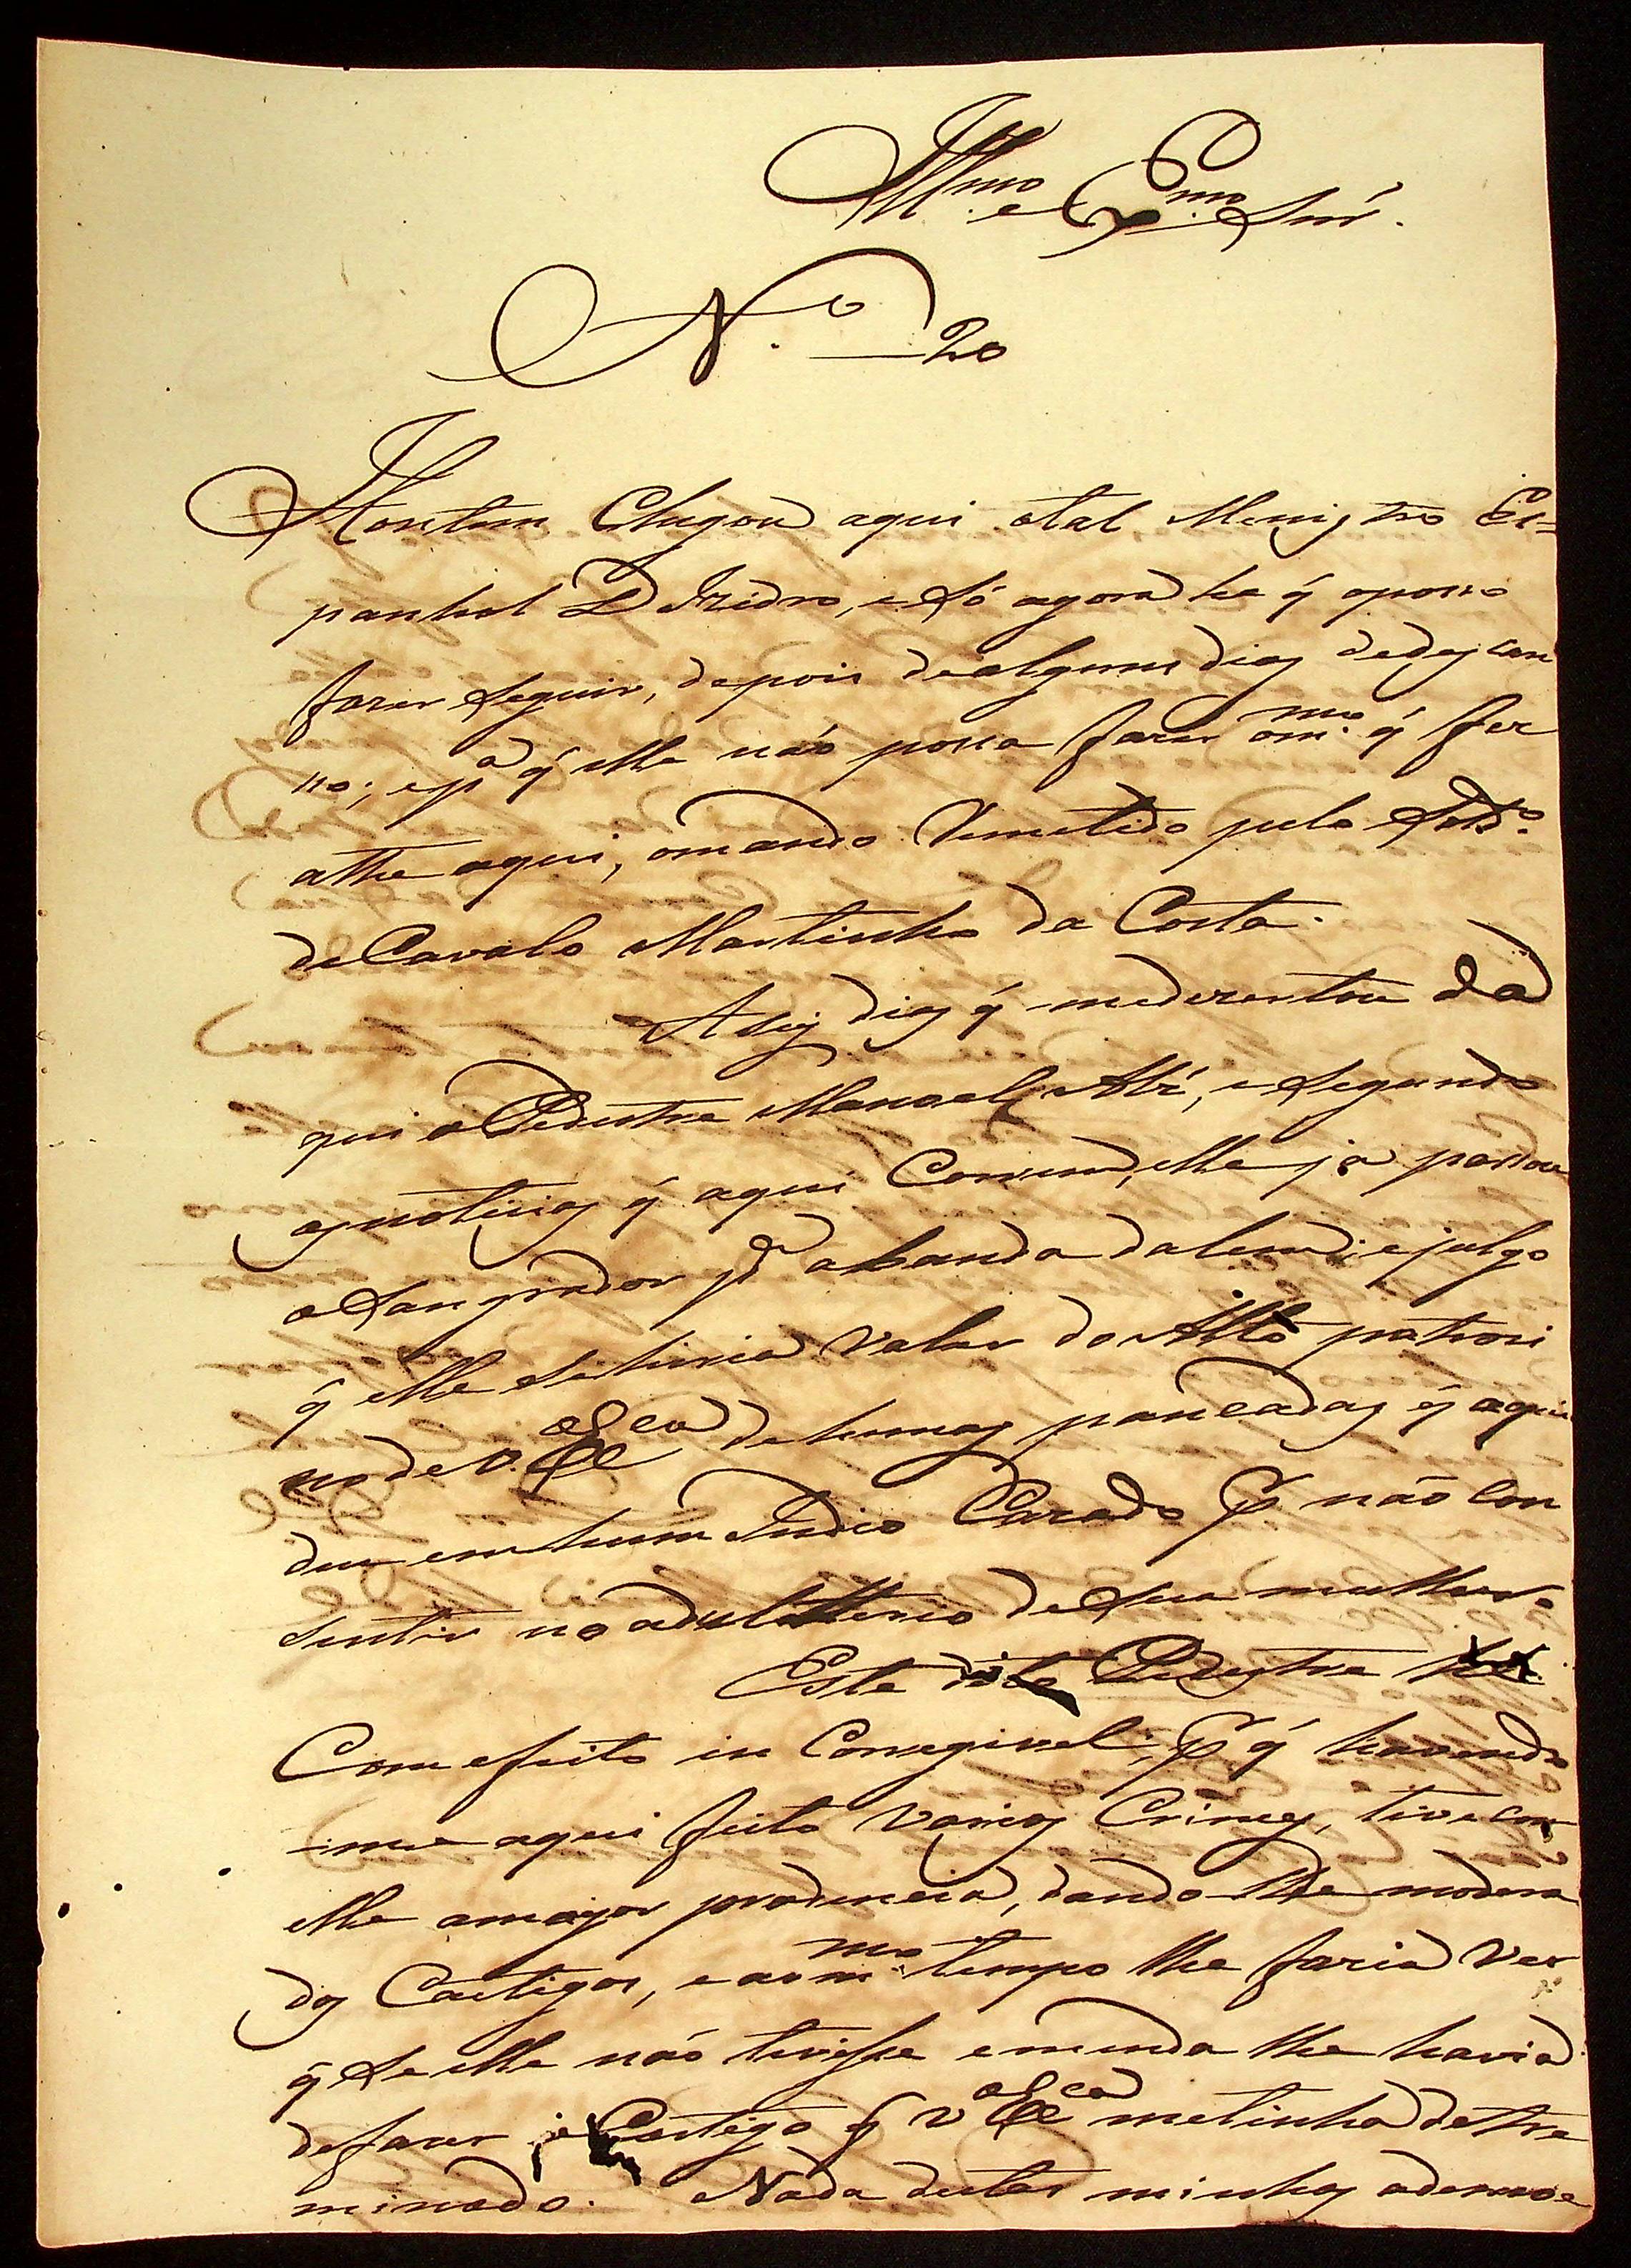 Illmo. e Exmo. Snr.
N.o 20
Hontem Chegou aqui otal Menistro Es=
panhol D Izidro, e Só agora he q̃ oposso
fazer Seguir, depois dealguns dias dedescan
so; e pa q̃ elle não possa fazer ommo. q̃ fez
athe aqui, omando Remetido pelo Soldo.
de Cavalo Martinho da Costa.
A seis dias q̃ medezertou da
qui o Pedestre Manoel Alz', e Segundo
as noticias q̃ aqui Correm, elle já passou
o Sangrador pa abanda dalem; e julgo
q̃ elle Sehiria Valer do Alto patroci
no de V. Exca dehumas pancadas q̃ aqui
deu em hum Indio Cazado P não Con
sentir no adultterio de Sua mulher.
Este dito Pedestre he
Comefeito in Corregivel; P q̃ havendo
=me aqui feito Varios Crimes, tive com
elle amayor prudencia, dando-lhe modera
dos Castigos, e aommo. tempo lhe fazia Ver
q̃ Se elle não tivesse emenda lhe havia
defazer o Castigo q̃ V Exca metinha detre
minado. Nada destas minhas admoe